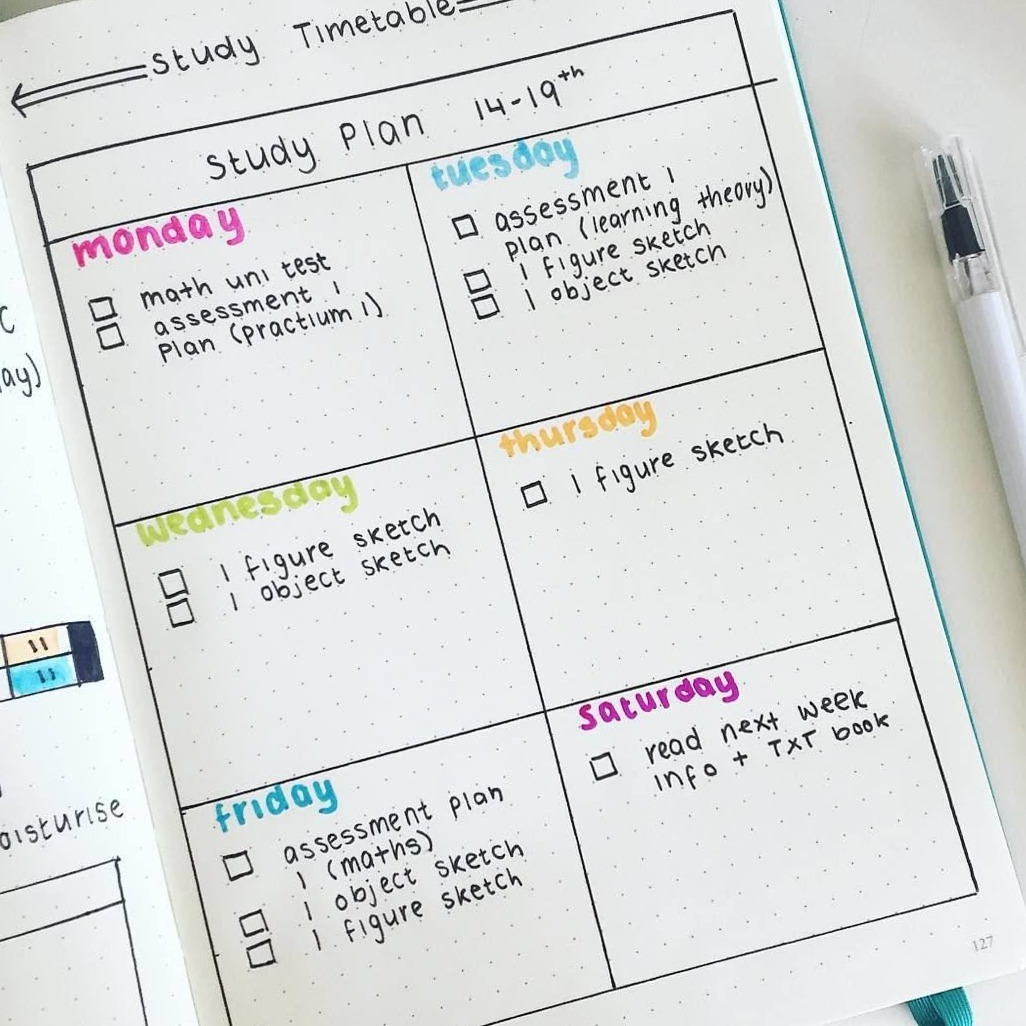 Study Timetable
Study Plan 14-19th
monday
math uni test
assessment 1
plan (practium 1)
tuesday
assessment 1
plan (learning theory)
1 figure sketch
1 object sketch
wednesday
1 figure sketch
1 object sketch
thursday
1 figure sketch
friday
assessment plan
1 (maths)
1 object sketch
1 figure sketch
saturday
read next week
info + TXT book
127
ay)
11
11
oisturise